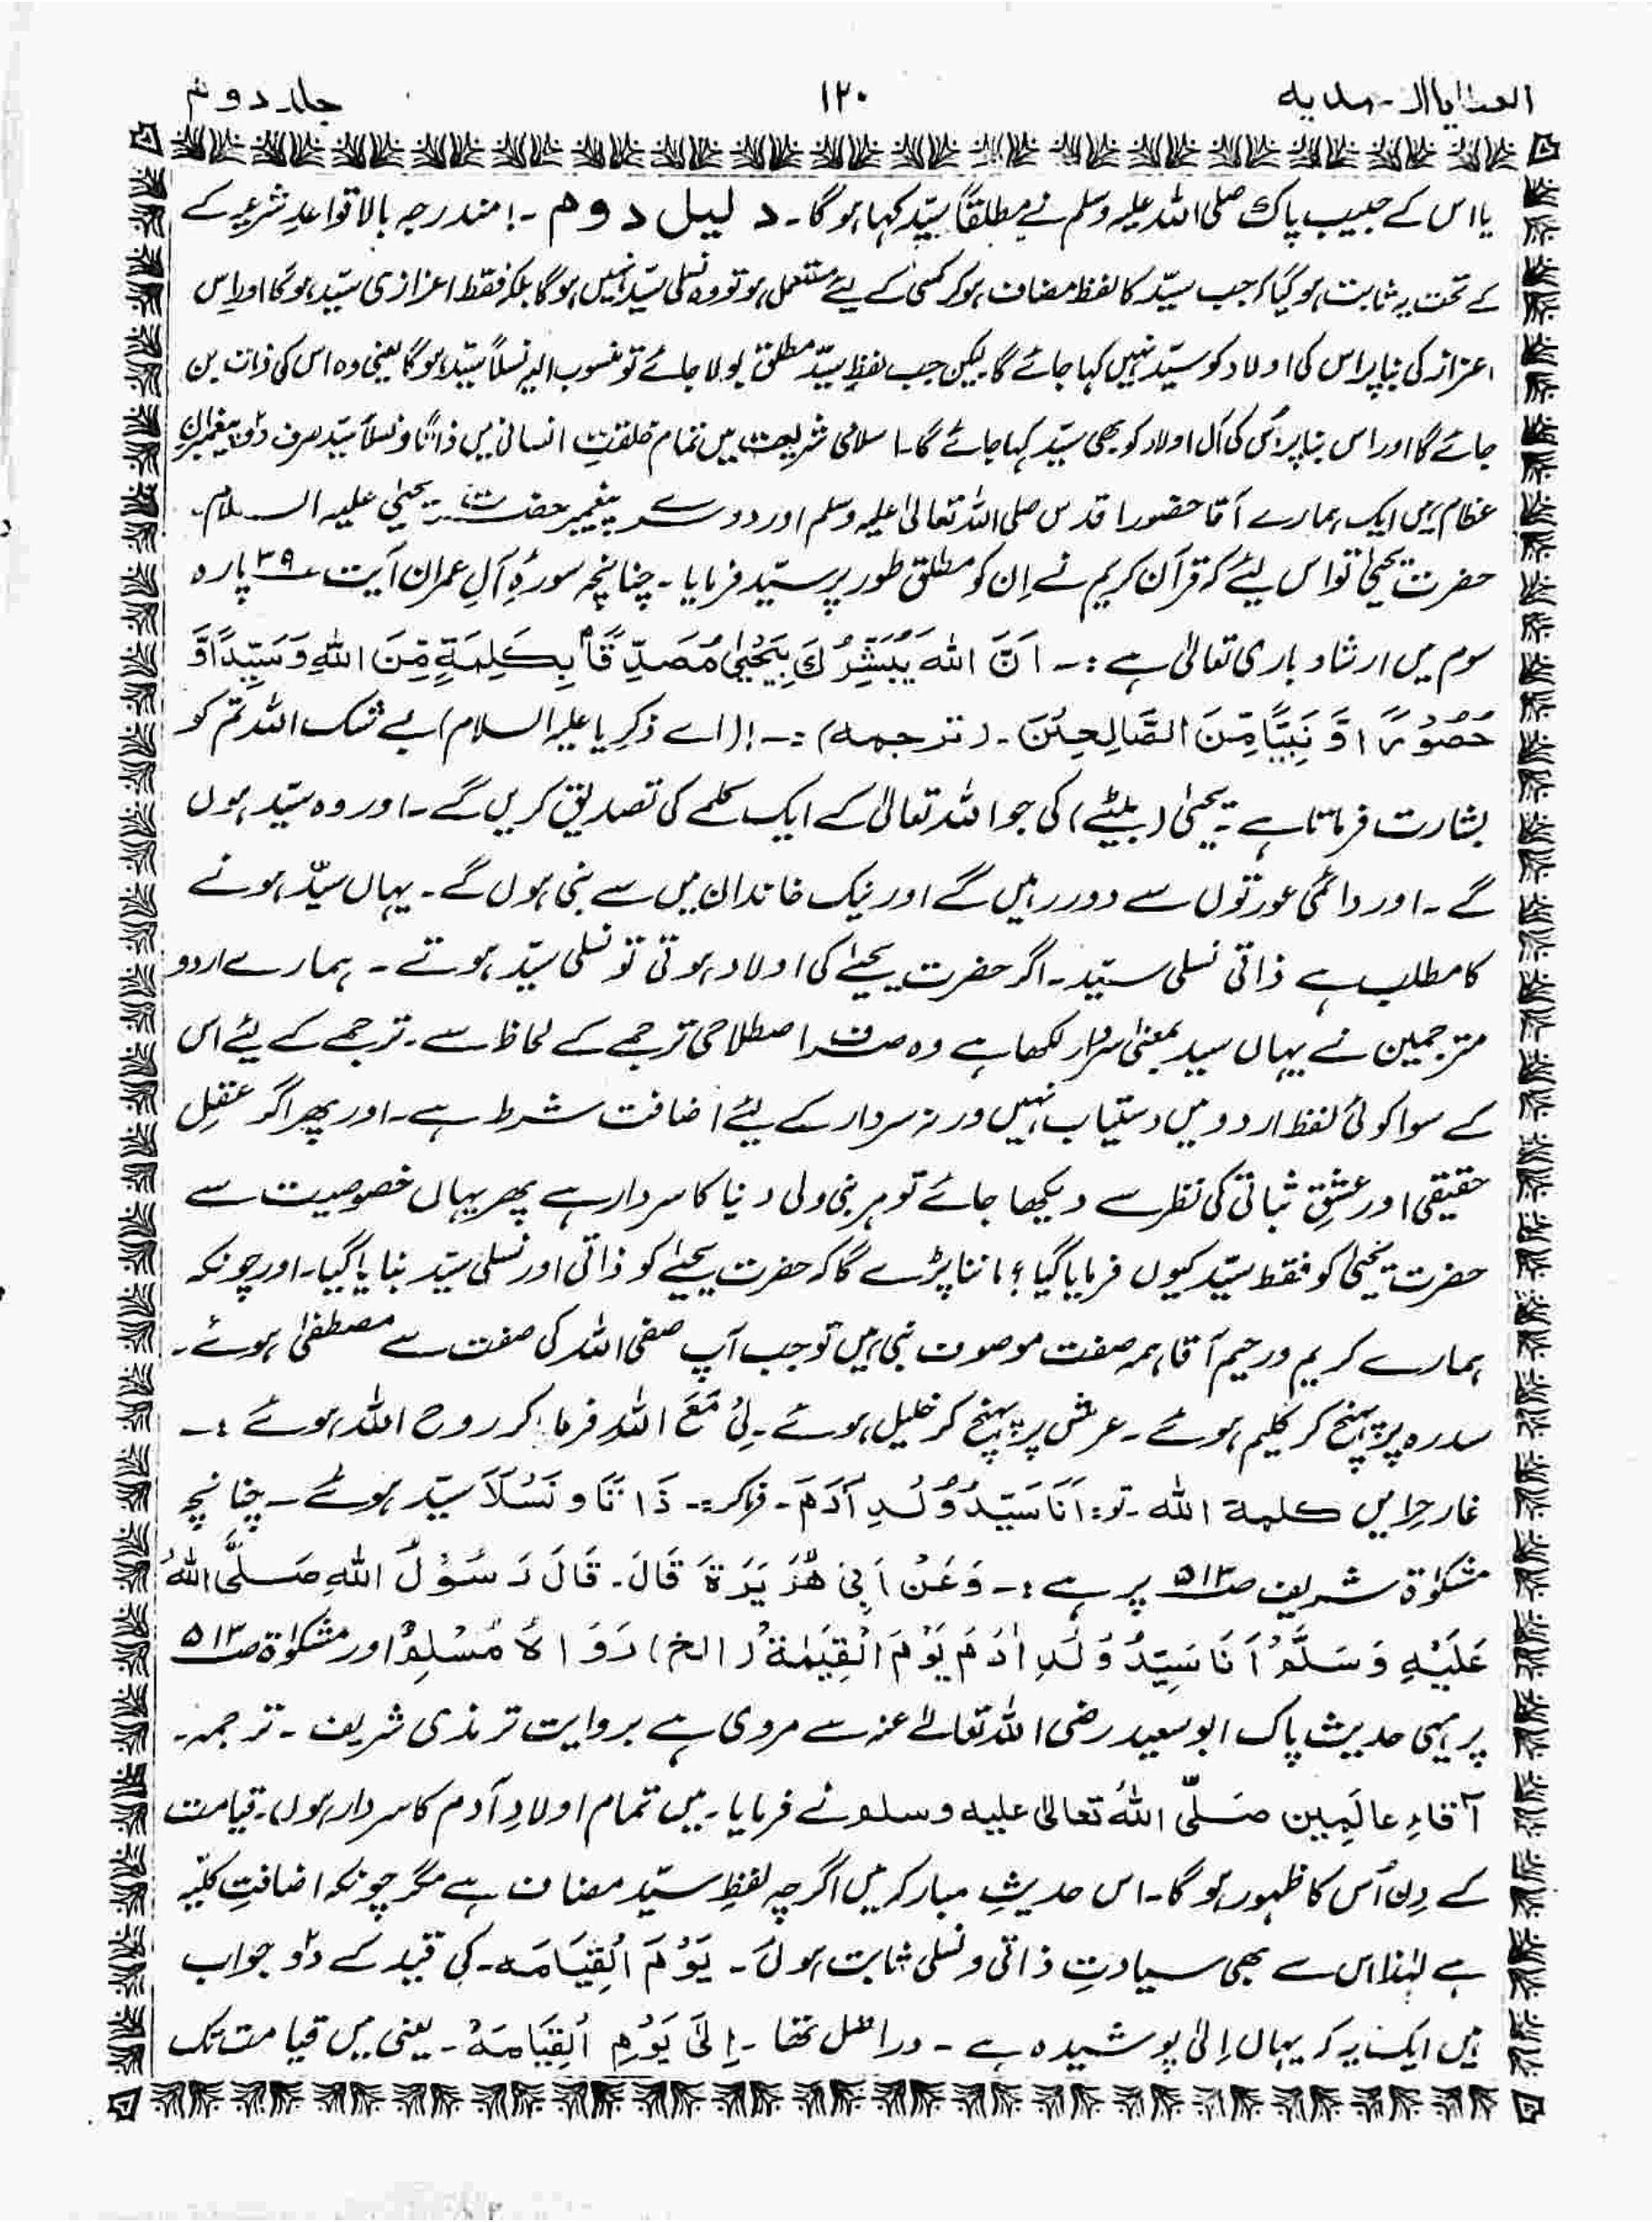 العطایا الاحمدیه ۱۲۰ جلد دوئم
یا اس کے حبیب پاک صلی اللہ علیہ وسلم نے مطلقاً سیّد کہا ہو گا۔ دلیل دوم ۔! مندرجہ بالا قواعدِ شرعیہ کے
کے تحت یہ ثابت ہو گیا کہ جب سیّد کا لفظ مضاف ہو کر کسی کے لیئے مستعمل ہو تو وہ نسلی سیّد نہیں ہو گا بلکہ فقط اعزازی سیّد ہو گا اور اِس
اعزاز کی بنا پر اس کی اولاد کو سیّد نہیں کہا جائے گا۔ لیکن جب لفظِ سیّد مطلق بولا جائے تو منسوب الیہ نسلاً سیّد ہو گا یعنی وہ اس کی ذات بن
جائے گا اور اس بنا پر اُس کی آل اولاد کو بھی سیّد کہا جائے گا۔ اسلامی شریعت میں تمام خلقتِ انسانی میں ذاتًا و نسلاً سیّد صرف دو پیغمبرانِ
عظام ہیں ایک ہمارے آقا حضور اقدس صلی اللہ تعالیٰ علیہ وسلم اور دوسرے پیغمبر حضرت یحییٰ علیہ السلام۔
حضرت یحییٰ تو اس لیئے کہ قرآن کریم نے اِن کو مطلق طور پر سیّد فرمایا ۔ چنانچہ سورۂ آلِ عمران آیت ۳۹ پارہ
سوم میں ارشاد باری تعالیٰ ہے :۔ اَنَّ اللهَ يُبَشِّرُكَ بِيَحْيٰى مُصَدِّقًاۢ بِكَلِمَةٍ مِّنَ اللهِ وَسَيِّدًا وَّ
حَصُوْرًا وَّ نَبِيًّا مِّنَ الصَّالِحِيْنَ ۔ (ترجمہ) :۔! (اے ذکریا علیہ السلام) بے شک اللہ تم کو
بشارت فرماتا ہے ۔ یحییٰ (بیٹے) کی جو اللہ تعالیٰ کے ایک کلمے کی تصدیق کریں گے ۔ اور وہ سیّد ہوں
گے ۔ اور دائمی عورتوں سے دور رہیں گے اور نیک خاندان میں سے نبی ہوں گے ۔ یہاں سیّد ہونے
کا مطلب ہے ذاتی نسلی سیّد ۔ اگر حضرت یحییٰ کی اولاد ہوتی تو نسلی سیّد ہوتے ۔ ہمارے اردو
مترجمین نے یہاں سید بمعنیٰ سردار لکھا ہے وہ صرف اصطلاحی ترجمے کے لحاظ سے ۔ ترجمے کے لیئے اس
کے سوا کوئی لفظ اردو میں دستیاب نہیں ورنہ سردار کے لیئے اضافت شرط ہے ۔ اور پھر اگر عقلِ
حقیقی اور عشقِ ثباتی کی نظر سے دیکھا جائے تو ہر نبی ولی دنیا کا سردار ہے پھر یہاں خصوصیت سے
حضرت یحییٰ کو فقط سیّد کیوں فرمایا گیا ؟ ماننا پڑے گا کہ حضرت یحییٰ کو ذاتی اور نسلی سیّد بنایا گیا۔ اور چونکہ
ہمارے کریم و رحیم آقا ہمہ صفت موصوف نبی ہیں تو جب آپ صفی اللہ کی صفت سے مصطفیٰ ہوئے ۔
سدرہ پر پہنچ کر کلیم ہوئے ۔ عرش پر پہنچ کر خلیل ہوئے ۔ لِیْ مَعَ اللہِ فرما کر روح اللہ ہوئے :۔
غار حرا میں کلمة الله ۔ تو : اَنَا سَيِّدُ وُلْدِ آدَمَ ۔ فرما کر :۔ ذَاتًا و نَسْلًا سیّد ہوئے ۔ چنانچہ
مشکوٰۃ شریف ص۵۱۳ پر ہے :۔ وَعَنْ اَبِيْ هُرَيْرَةَ قَالَ ۔ قَالَ رَسُوْلُ اللهِ صَلَّى اللهُ
عَلَيْهِ وَسَلَّمَ اَنَا سَيِّدُ وُلْدِ اٰدَمَ يَوْمَ الْقِيٰمَةِ (الخ) رَوَاهُ مُسْلِمٌ اور مشکوٰۃ ص۵۱۳
پر یہی حدیث پاک ابو سعید رضی اللہ تعالےٰ عنہ سے مروی ہے بروایت ترمذی شریف ۔ ترجمہ ۔
آقاءِ عالَمِین صَلَّی اللہُ تعالیٰ علیہ وسلم نے فرمایا ۔ میں تمام اولادِ آدم کا سردار ہوں ۔ قیامت
کے دِن اُس کا ظہور ہو گا ۔ اس حدیثِ مبارکہ میں اگرچہ لفظِ سیّد مضاف ہے مگر چونکہ اضافتِ کلیّہ
ہے لہٰذا اس سے بھی سیادتِ ذاتی و نسلی ثابت ہوئی ۔ يَوْمَ الْقِيَامَه ۔ کی قید کے دو جواب
ہیں ایک یہ کہ یہاں اِلیٰ پوشیدہ ہے ۔ دراصل تھا ۔ اِلىٰ يَوْمِ الْقِيَامَةِ ۔ یعنی میں قیامت تک